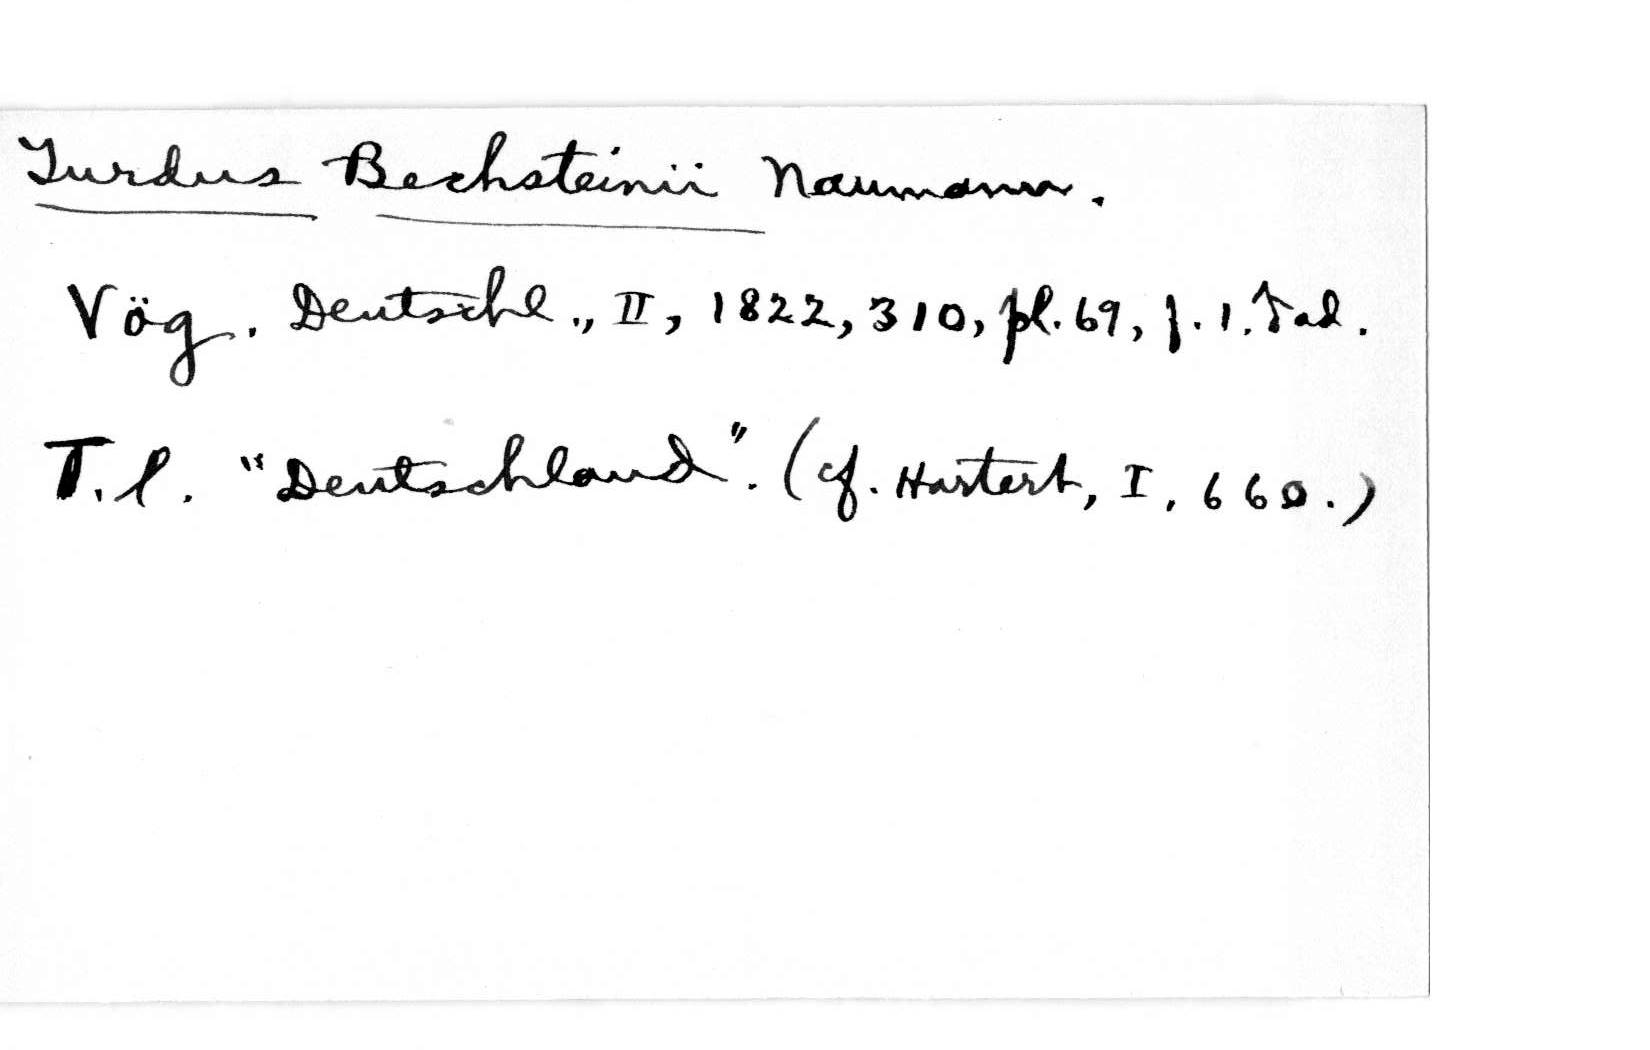 Turdus Bechsteinii Naumann.
Vög. Deutschl., II, 1822, 310, pl. 69, f. 1. ♂ ad.
T. l. "Deutschland". (cf. Hartert, I, 660.)